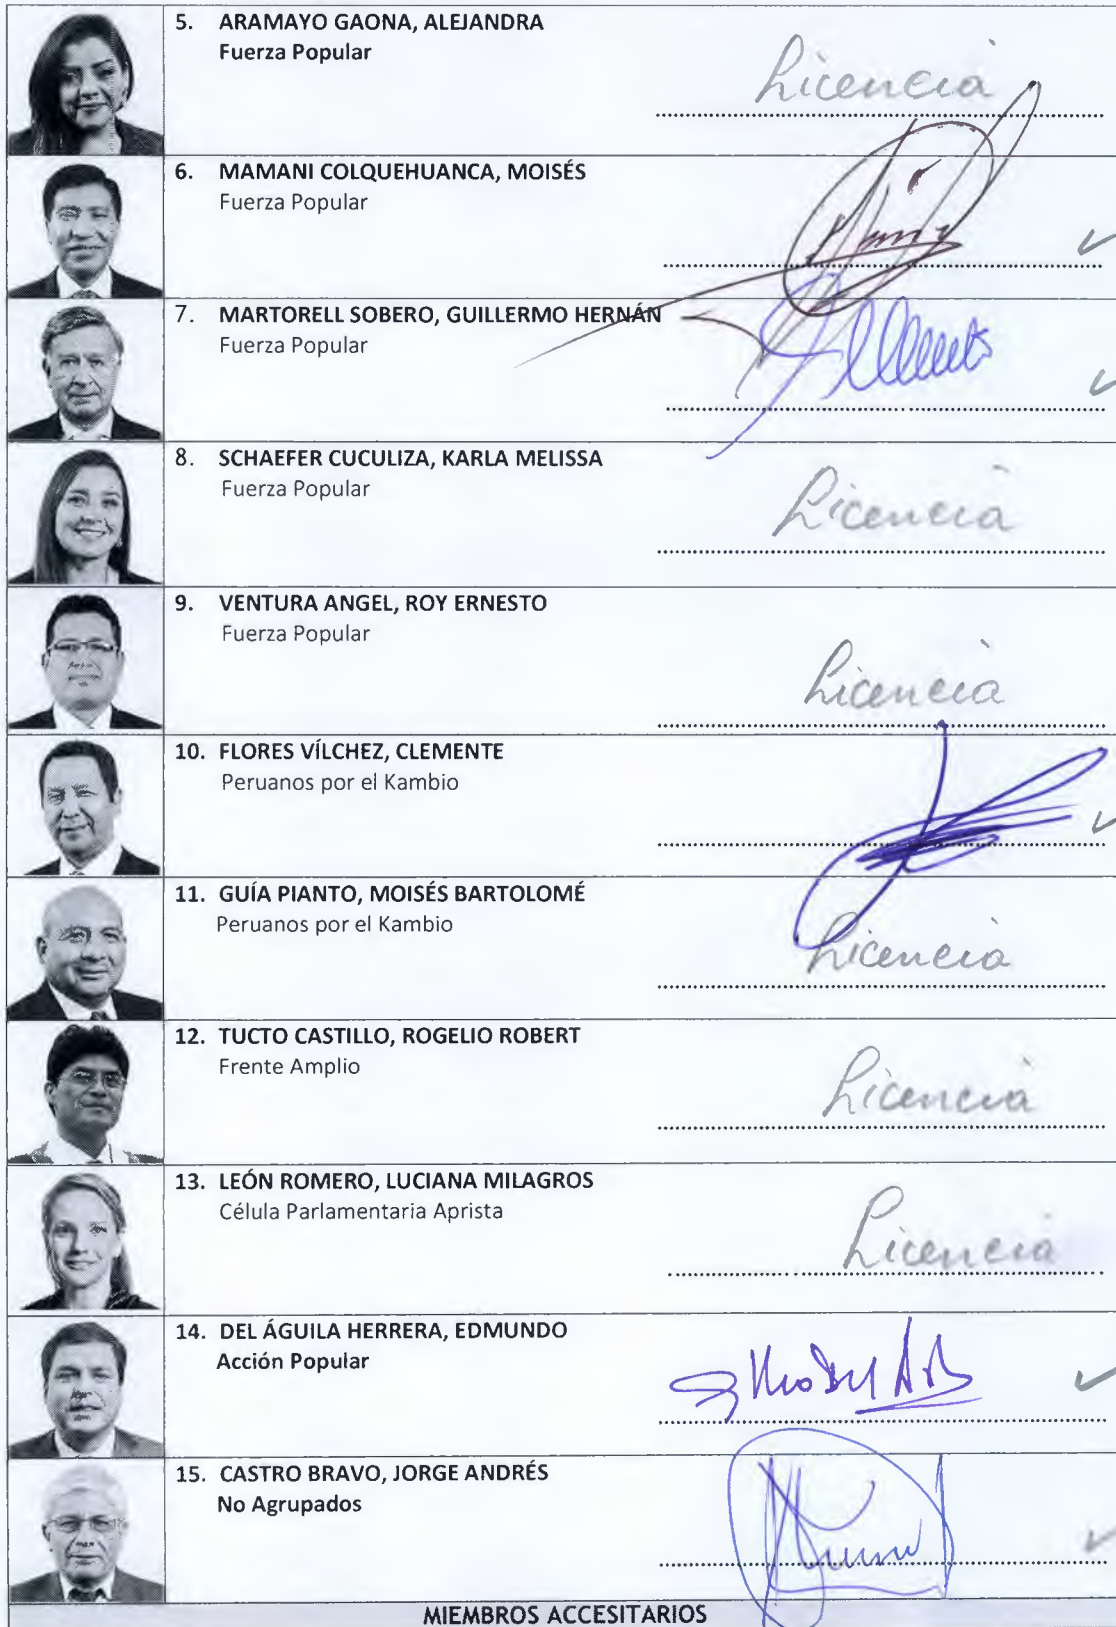 5. ARAMAYO GAONA, ALEJANDRA
Fuerza Popular
Licencia
6. MAMANI COLQUEHUANCA, MOISÉS
Fuerza Popular
7. MARTORELL SOBERO, GUILLERMO HERNÁN
Fuerza Popular
8. SCHAEFER CUCULIZA, KARLA MELISSA
Fuerza Popular
Licencia
9. VENTURA ANGEL, ROY ERNESTO
Fuerza Popular
Licencia
10. FLORES VÍLCHEZ, CLEMENTE
Peruanos por el Kambio
11. GUÍA PIANTO, MOISÉS BARTOLOMÉ
Peruanos por el Kambio
Licencia
12. TUCTO CASTILLO, ROGELIO ROBERT
Frente Amplio
Licencia
13. LEÓN ROMERO, LUCIANA MILAGROS
Célula Parlamentaria Aprista
Licencia
14. DEL ÁGUILA HERRERA, EDMUNDO
Acción Popular
15. CASTRO BRAVO, JORGE ANDRÉS
No Agrupados
MIEMBROS ACCESITARIOS